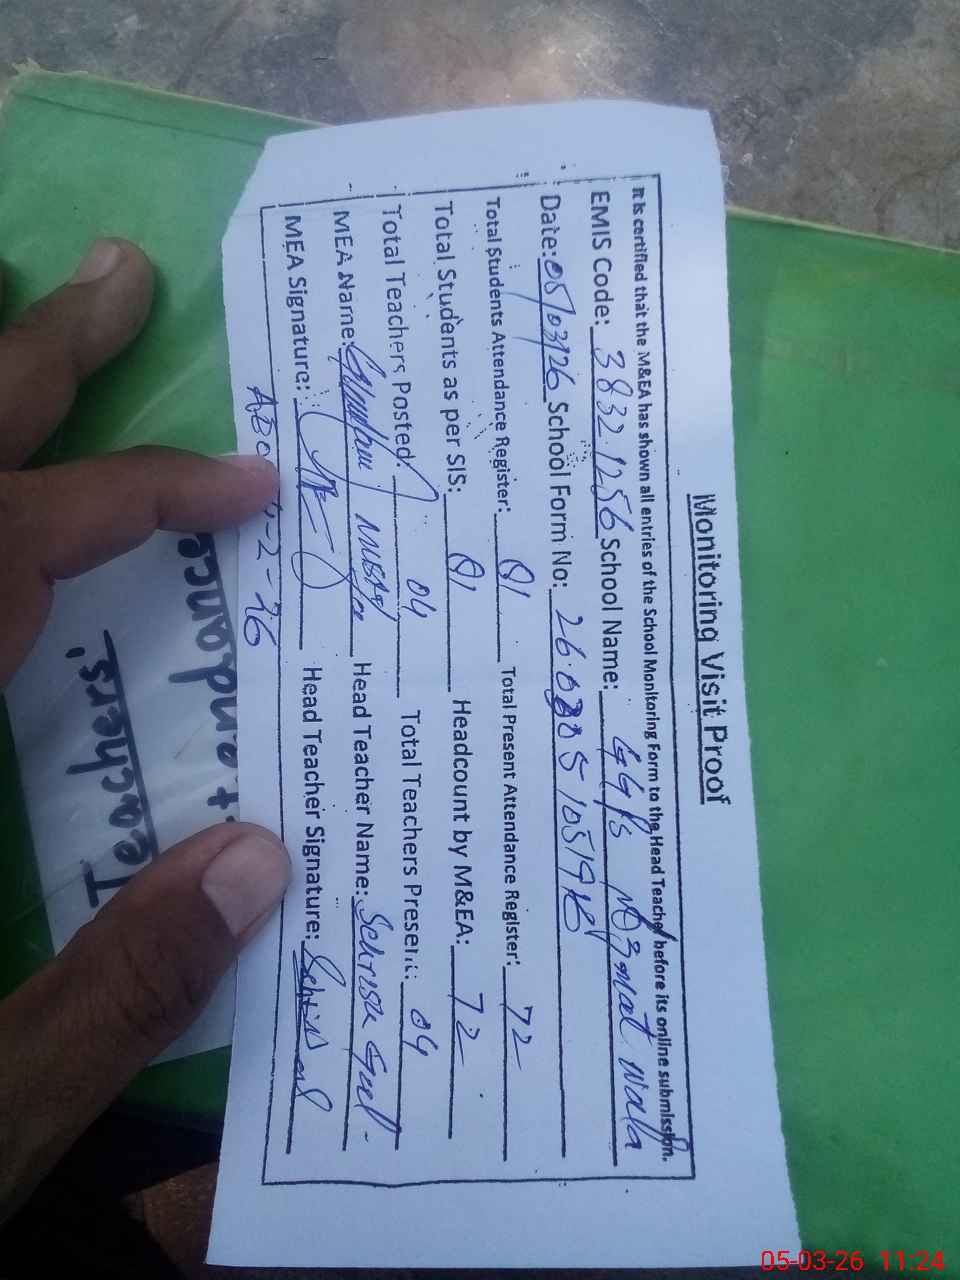 Monitoring Visit Proof
It is certified that the M&EA has shown all entries of the School Monitoring Form to the Head Teacher before its online submission.
EMIS Code: 38321256 School Name: GGPS wala
Date: 05/03/26 School Form No:
Total Students Attendance Register: 91 Total Present Attendance Register: 72
Total Students as per SIS: 91 Headcount by M&EA: 72
Total Teachers Posted: 04 Total Teachers Present: 04
MEA Name: Ghulam Mustafa Head Teacher Name: Gul
MEA Signature: Head Teacher Signature:
-2-26
Teachers'
05-03-26 11:24